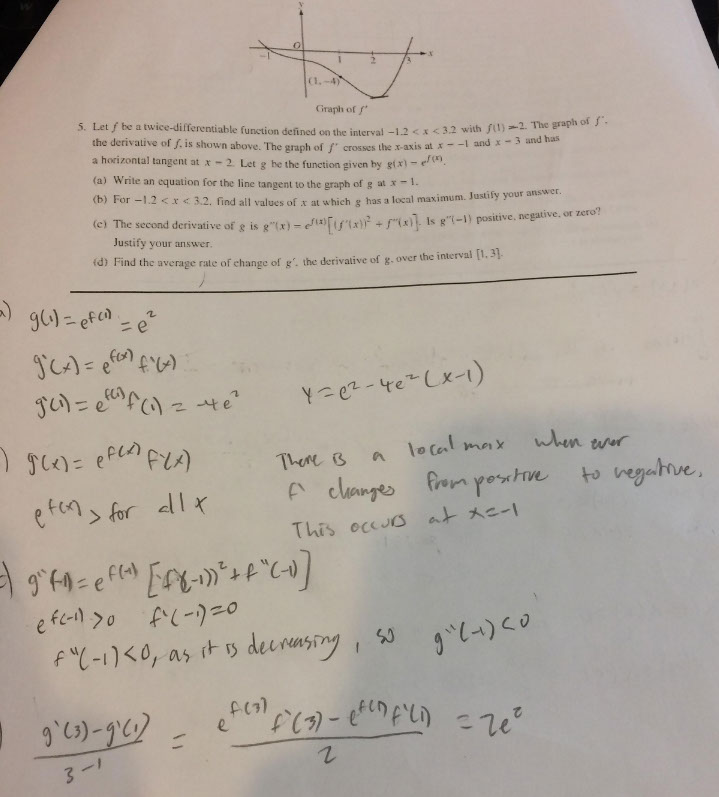 y
O
-1 1 2 3 x
(1, -4)
Graph of f'
5. Let f be a twice-differentiable function defined on the interval -1.2 < x < 3.2 with f(1) = 2. The graph of f',
the derivative of f, is shown above. The graph of f' crosses the x-axis at x = -1 and x = 3 and has
a horizontal tangent at x = 2. Let g be the function given by g(x) = e^{f(x)}.
(a) Write an equation for the line tangent to the graph of g at x = 1.
(b) For -1.2 < x < 3.2, find all values of x at which g has a local maximum. Justify your answer.
(c) The second derivative of g is g''(x) = e^{f(x)}[(f'(x))² + f''(x)]. Is g''(-1) positive, negative, or zero?
Justify your answer.
(d) Find the average rate of change of g', the derivative of g, over the interval [1, 3].
a) g(1) = e^{f(1)} = e²
g'(x) = e^{f(x)} f'(x)
g'(1) = e^{f(1)} f'(1) = -4e² y = e² - 4e²(x-1)
) g'(x) = e^{f(x)} f'(x) There is a local max when ever
e^{f(x)} > for all x f' changes from positive to negative.
This occurs at x=-1
c) g''(-1) = e^{f(-1)} [f'(-1))² + f''(-1)]
e^{f(-1)} >0 f'(-1)=0
f''(-1)<0, as it is decreasing, so g''(-1)<0
) g'(3)-g'(1) / 3-1 = e^{f(3)} f'(3) - e^{f(1)} f'(1) / 2 = 2e²